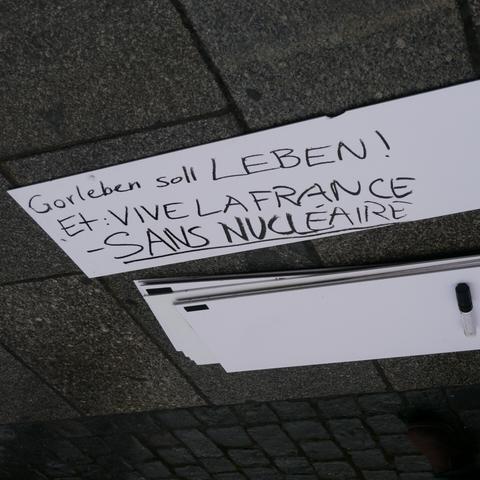 Gorleben soll LEBEN!
Et: VIVE LA FRANCE
- SANS NUCLÉAIRE